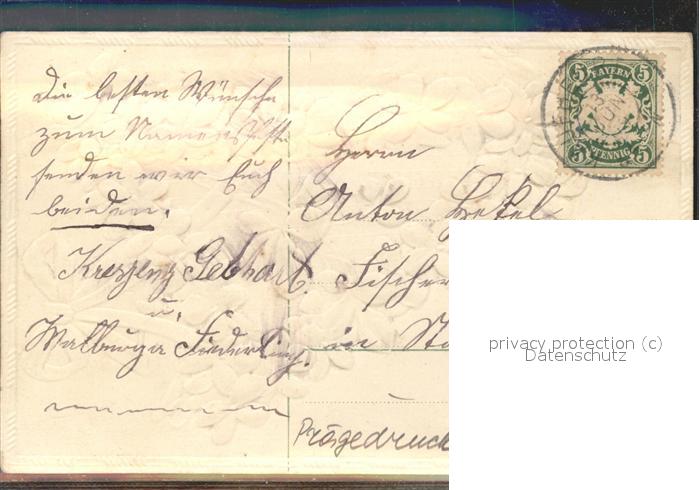 Die besten Wünsche
zum Namensfeste
senden wir Euch
beiden.
Kreszenz Gebhart.
u.
Walburga
Herrn
Anton
Fischer
in
Prägedruck
5 5
BAYERN
PFENNIG
5 5
privacy protection (c)
Datenschutz